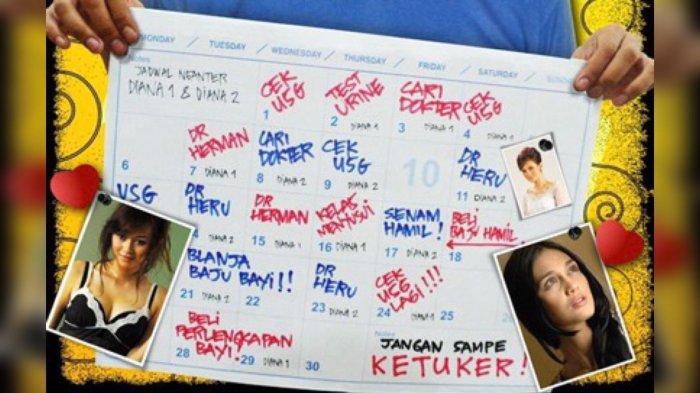 MONDAY / TUESDAY / WEDNESDAY / THURSDAY / FRIDAY / SATURDAY / SUNDAY
Notes
JADWAL NGANTER
DIANA 1 & DIANA 2
CEK
USG
1
TEST
URINE
2 DIANA 1
CARI
DOKTER
3 DIANA 1
CEK
USG
4
6
DR
HERMAN
7 DIANA 1
CARI
DOKTER
8 DIANA 2
CEK
USG
9 DIANA 2
10
DR
HERU
11 DIANA 2
USG
DR
HERU
14 DIANA 2
DR
HERMAN
15 DIANA 1
KELAS
MENYUSUI
16 DIANA 1
SENAM
HAMIL!
17 DIANA 2
BELI
BAJU HAMIL
18
BLANJA
BAJU BAYI!!
21 DIANA 2
22
DR
HERU
23 DIANA 2
CEK
USG
LAGI!!!
24 DIANA 1
BELI
PERLENGKAPAN
BAYI!
28
29 DIANA 1
30
Notes
JANGAN SAMPE
KETUKER!